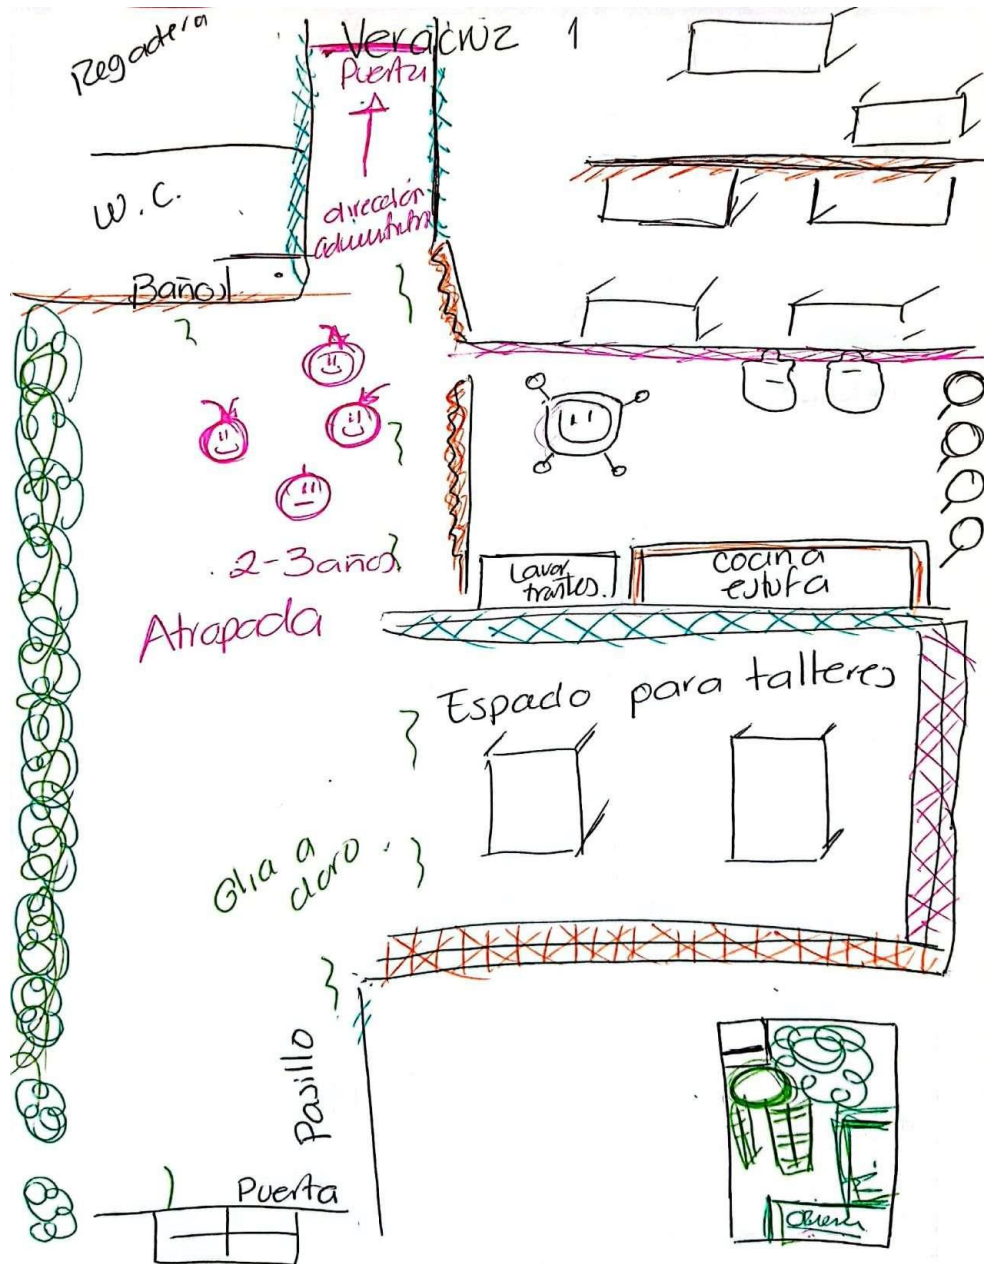 Regadera
Veracruz 1
Puerta
W.C.
dirección
Baños
2-3 años
Atrapada
Lavar
trastes.
cocina
estufa
Espacio para talleres
a
Pasillo
Puerta